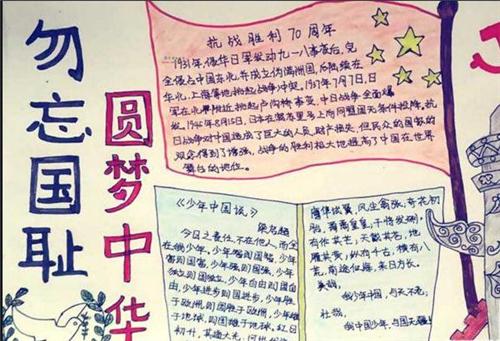 勿忘国耻
圆梦中华
抗战胜利70周年
1931年,侵华日军发动九一八事变后,完
全侵占中国东北,并成立伪满洲国,后陆续在
华北、上海等地挑起战争冲突。1937年7月7日,日
军在北平附近挑起卢沟桥事变,中日战争全面爆
发。1945年8月15日,日本在 向同盟国无条件投降。抗
日战争对中国造成了巨大的人员、财产损失,但民众的国家的
观念得到了增强,战争的胜利极大地提高了中国在世界
舞台的地位。
《少年中国说》
梁启超
今日之责任,不在他人,而全
在我少年。少年智则国智,少年
富则国富,少年强则国强,少年
独立则国独立,少年自由则国自
由,少年进步则国进步,少年胜
于欧洲,则国胜于欧洲,少年雄
于地球,则国雄于地球。红日
初升,其道大光,
鹰隼试翼,风尘翕张。奇花初
胎,矞矞皇皇。干将发硎,
有作其芒。天戴其苍,地
履其黄。纵有千古,横有八
荒。前途似海,来日方长。
美哉,
我少年中国,与天不老;
壮哉,
我中国少年,与国无疆!